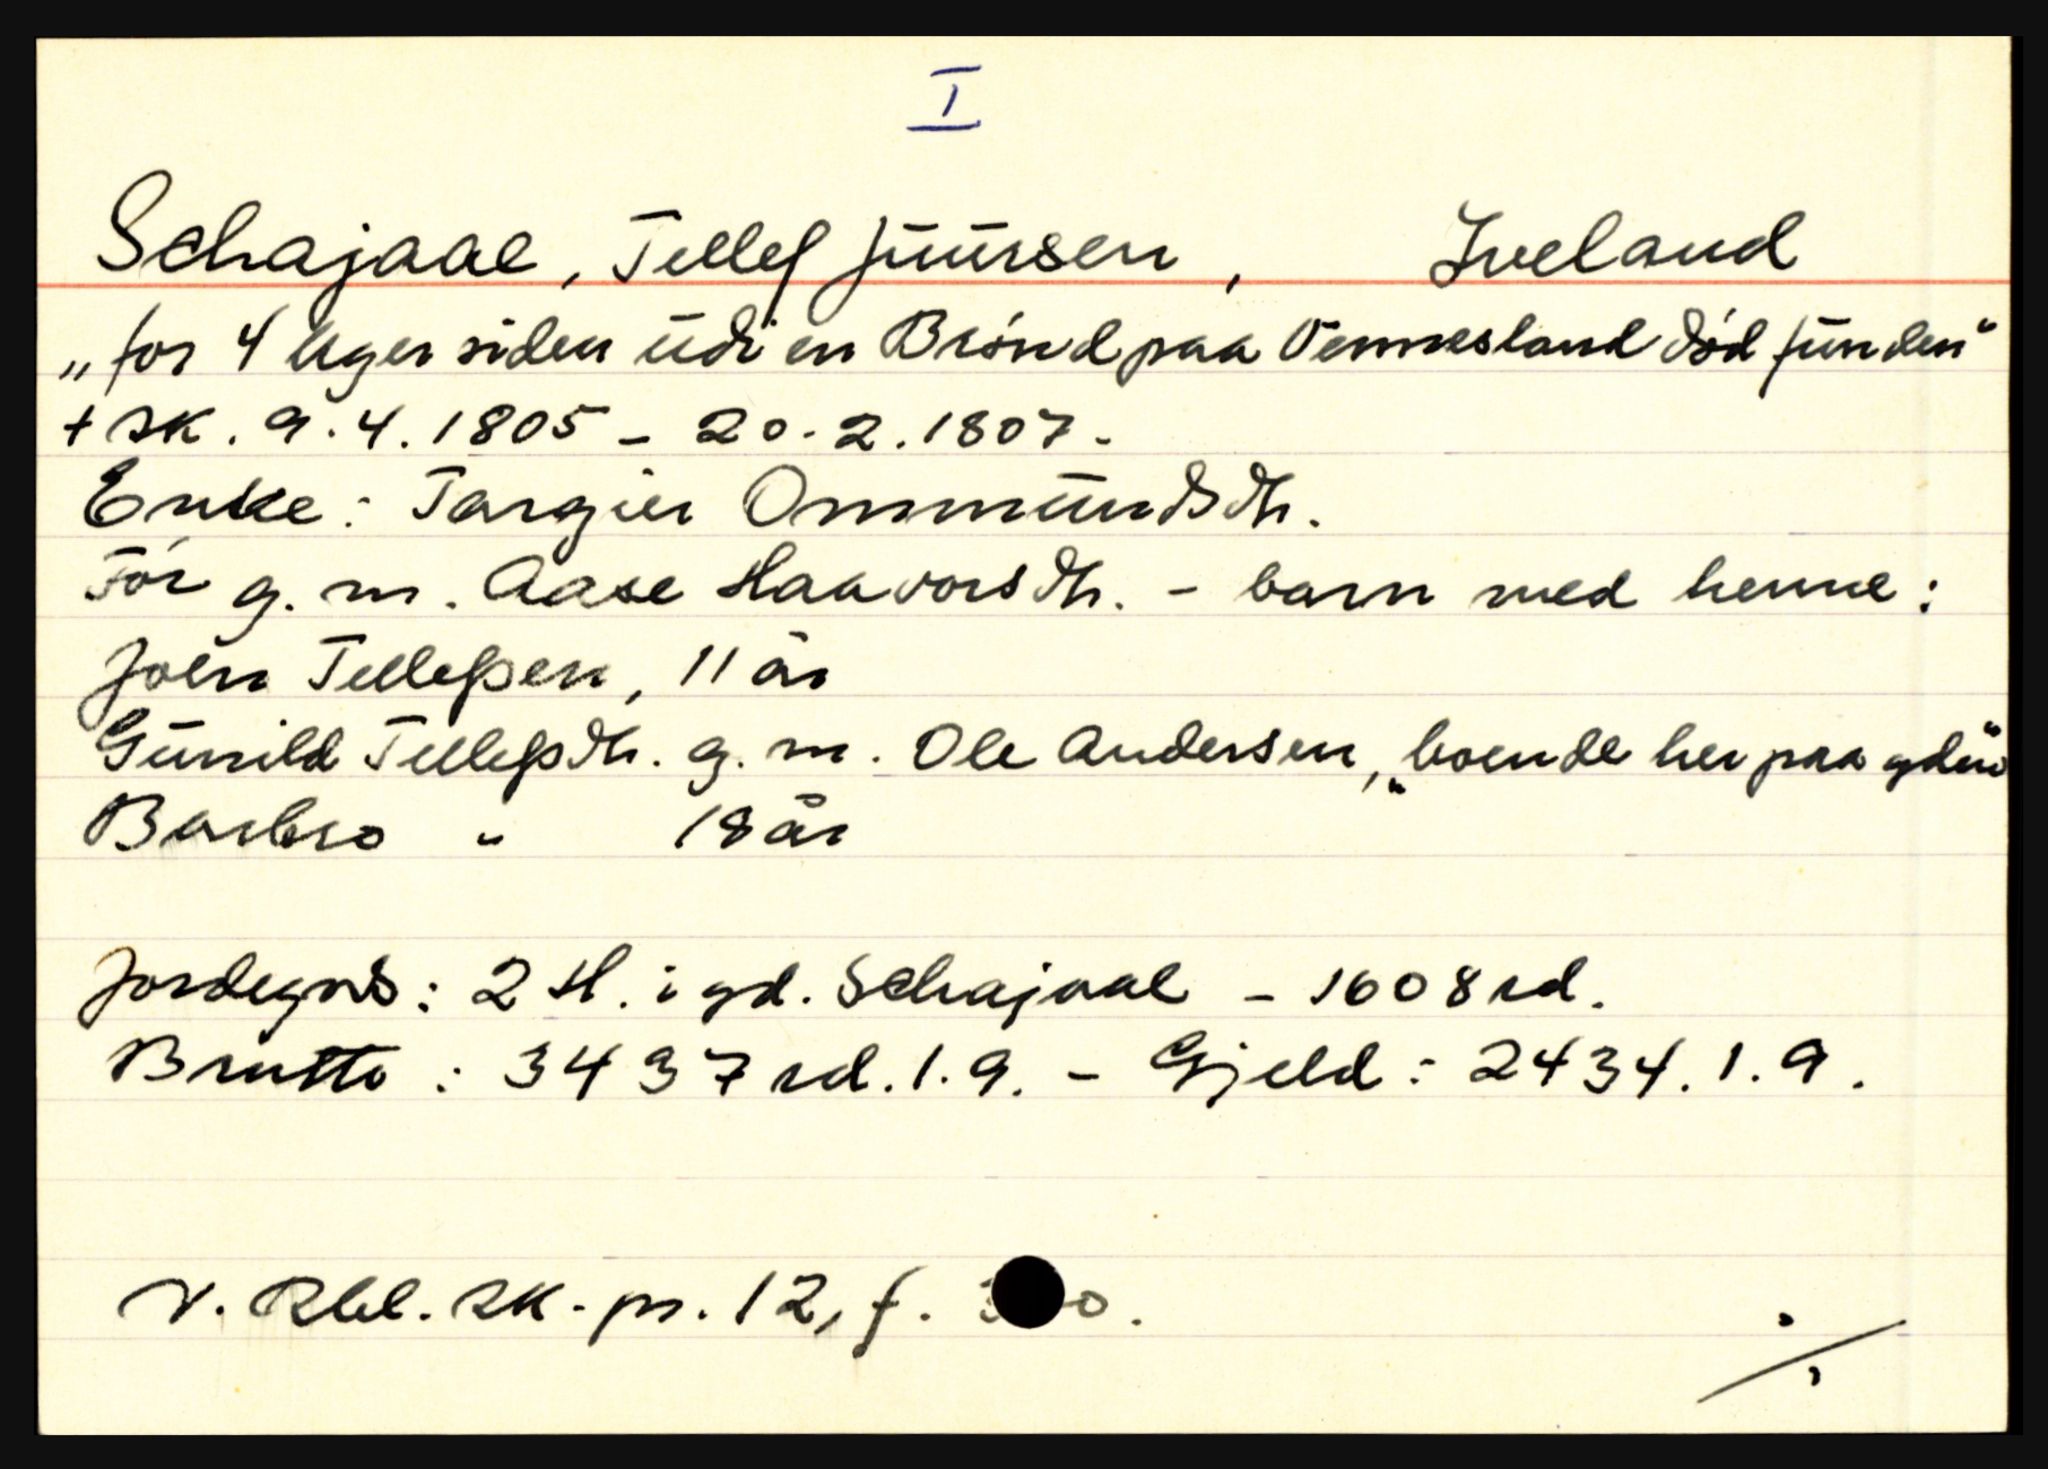 I
Schajaae, Tellef Juursen, Iveland
"for 4 Uger siden udi en Brönd paa Vennesland död funden"
+ sk. 9.4.1805 - 20.2.1807.
Enke: Targier Ommundsdtr.
För g.m. Aase Haavorsdtr. - barn med henne:
Joen Tellefsen, 11 år
Gunild Tellefsdtr. g.m. Ole Andersen, "boende her paa gden"
Barbro " 18 år
Jordegods: 2 H. i gd. Schajaal - 1608 rd.
Brutto: 3437 rd. 1.9. - Gjeld: 2434.1.9.
V. Rbl. sk. pr. 12, f.
./.